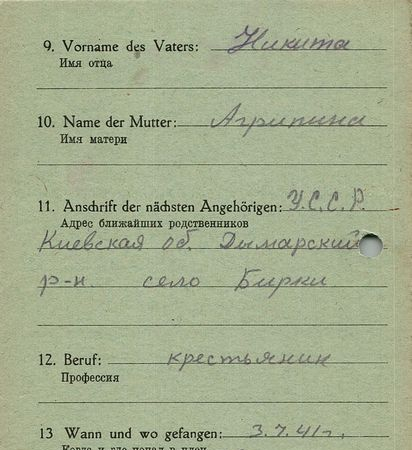 9. Vorname des Vaters: Никита
Имя отца
10. Name der Mutter: Агрипина
Имя матери
11. Anschrift der nächsten Angehörigen: У.С.С.Р.
Адрес ближайших родственников
Киевская об. Дымарский
р-н. село Бирки
12. Beruf: крестьянин
Профессия
13 Wann und wo gefangen: 3.7.41г.
Когда и где попал в плен